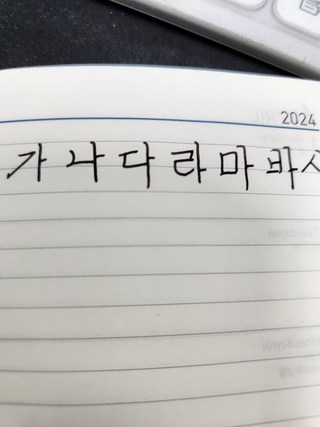 2024
가 나 다 라 마 바